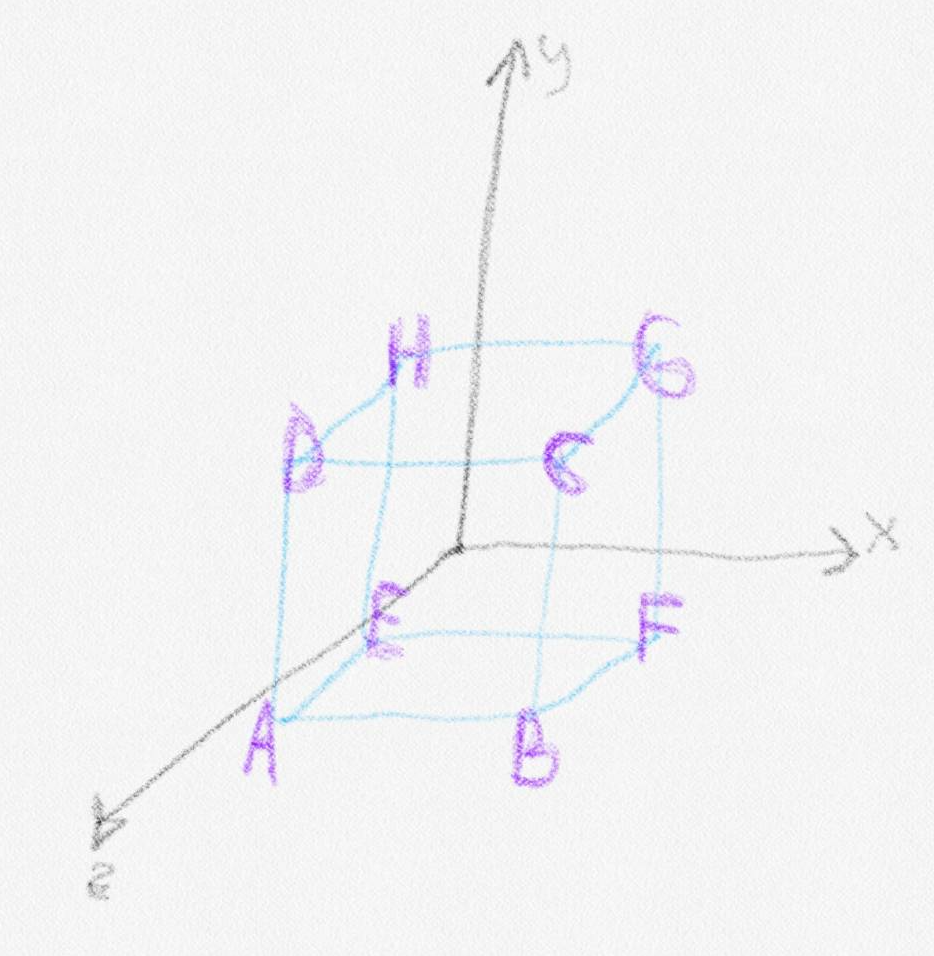 y
H G
D C
X
E F
A B
z